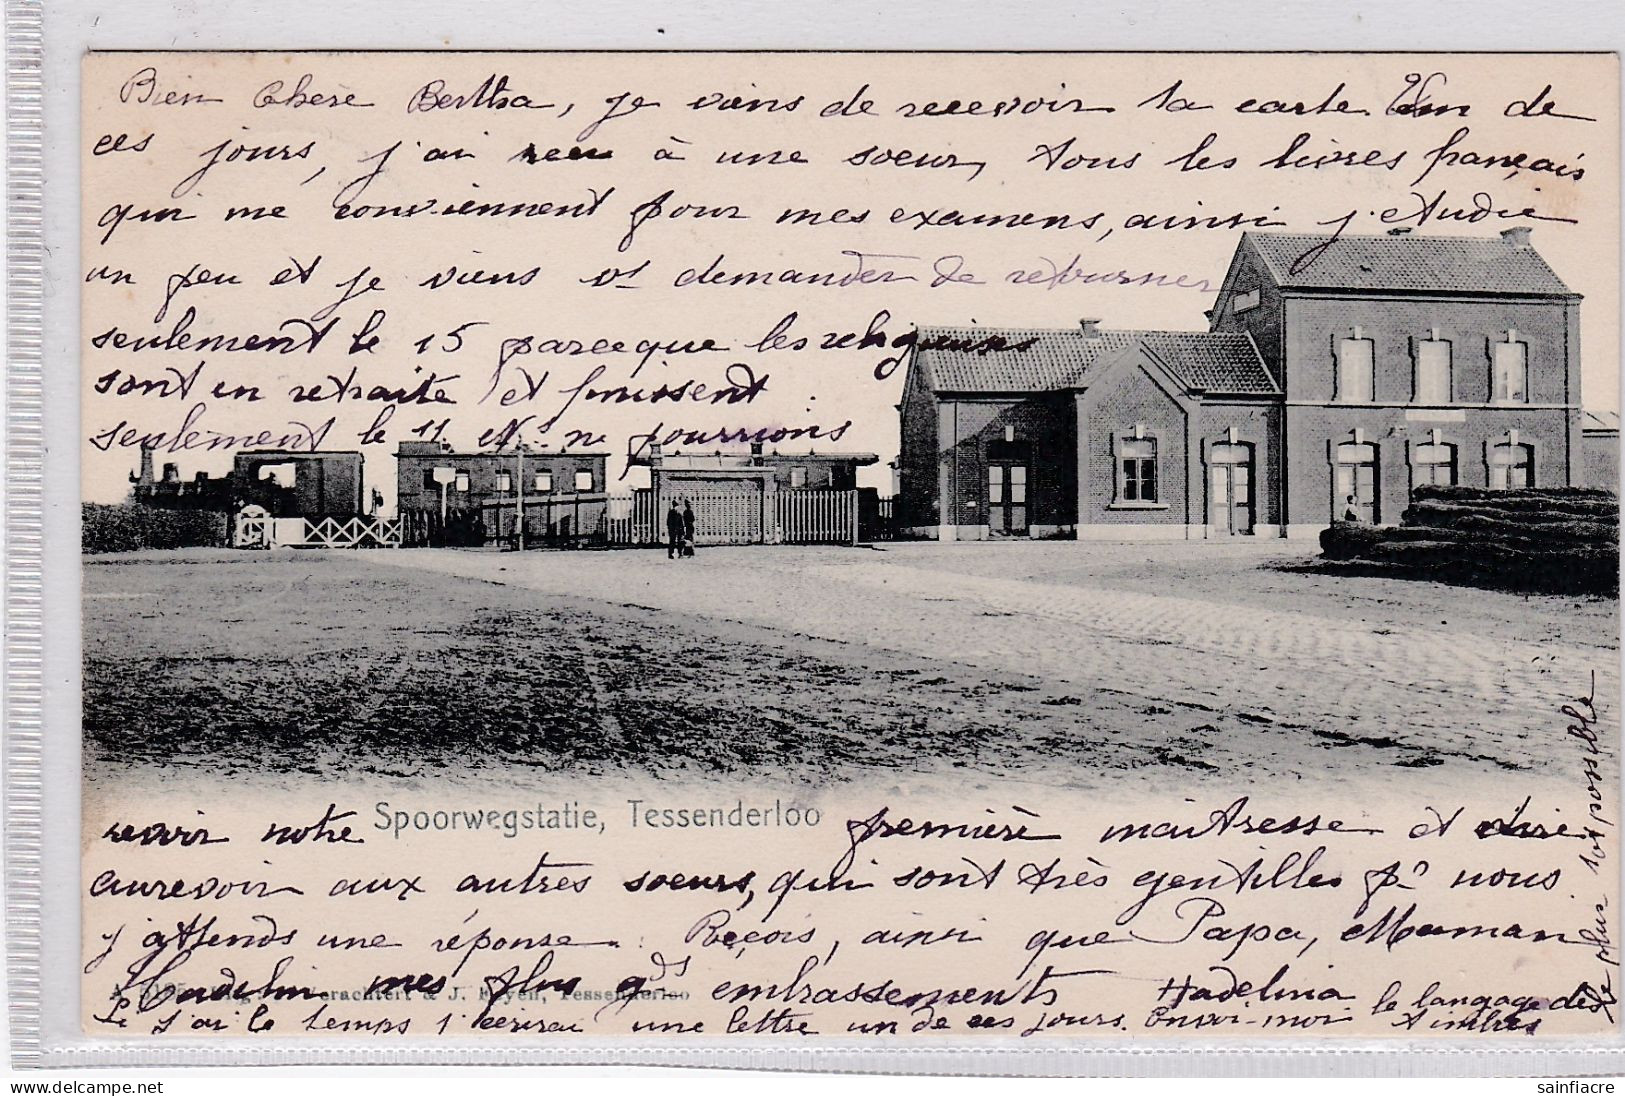 Bien Chère Bertha, je viens de recevoir ta carte. Un de
ces jours, j'ai reçu à une soeur, tous les livres français
qui me conviennent pour mes examens, ainsi j'étudie
un peu et je viens vs demander de retourner
seulement le 15 parceque les religieuses
sont en retraite et finissent
seulement le 11. et ns ne pourrions
revoir notre première maîtresse et dire
Spoorwegstatie, Tessenderloo
aurevoir aux autres soeurs, qui sont très gentilles pr nous
J'attends une réponse. Reçois, ainsi que Papa, Maman
mes plus gds embrassements Hadelina
Verachtert & J. Feyen, Tessenderloo
Si j'ai le temps j'écrirai une lettre un de ces jours. Envoi-moi le langage des timbres
le plus tôt possible
sainfiacre